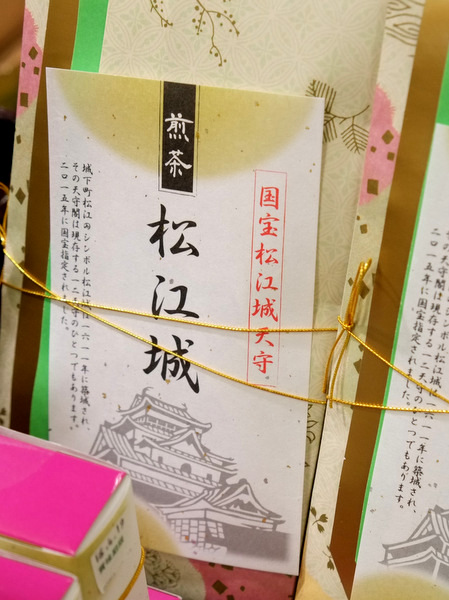 煎茶
国宝松江城天守
松江城
城下町松江のシンボル松江城は一六一一年に築城され、
その天守閣は現存する一二天守のひとつでもあります。
二〇一五年に国宝指定されました。
一六一一年に築城され、
現存する一二天守のひとつでもあります。
二〇一五年に国宝指定されました。